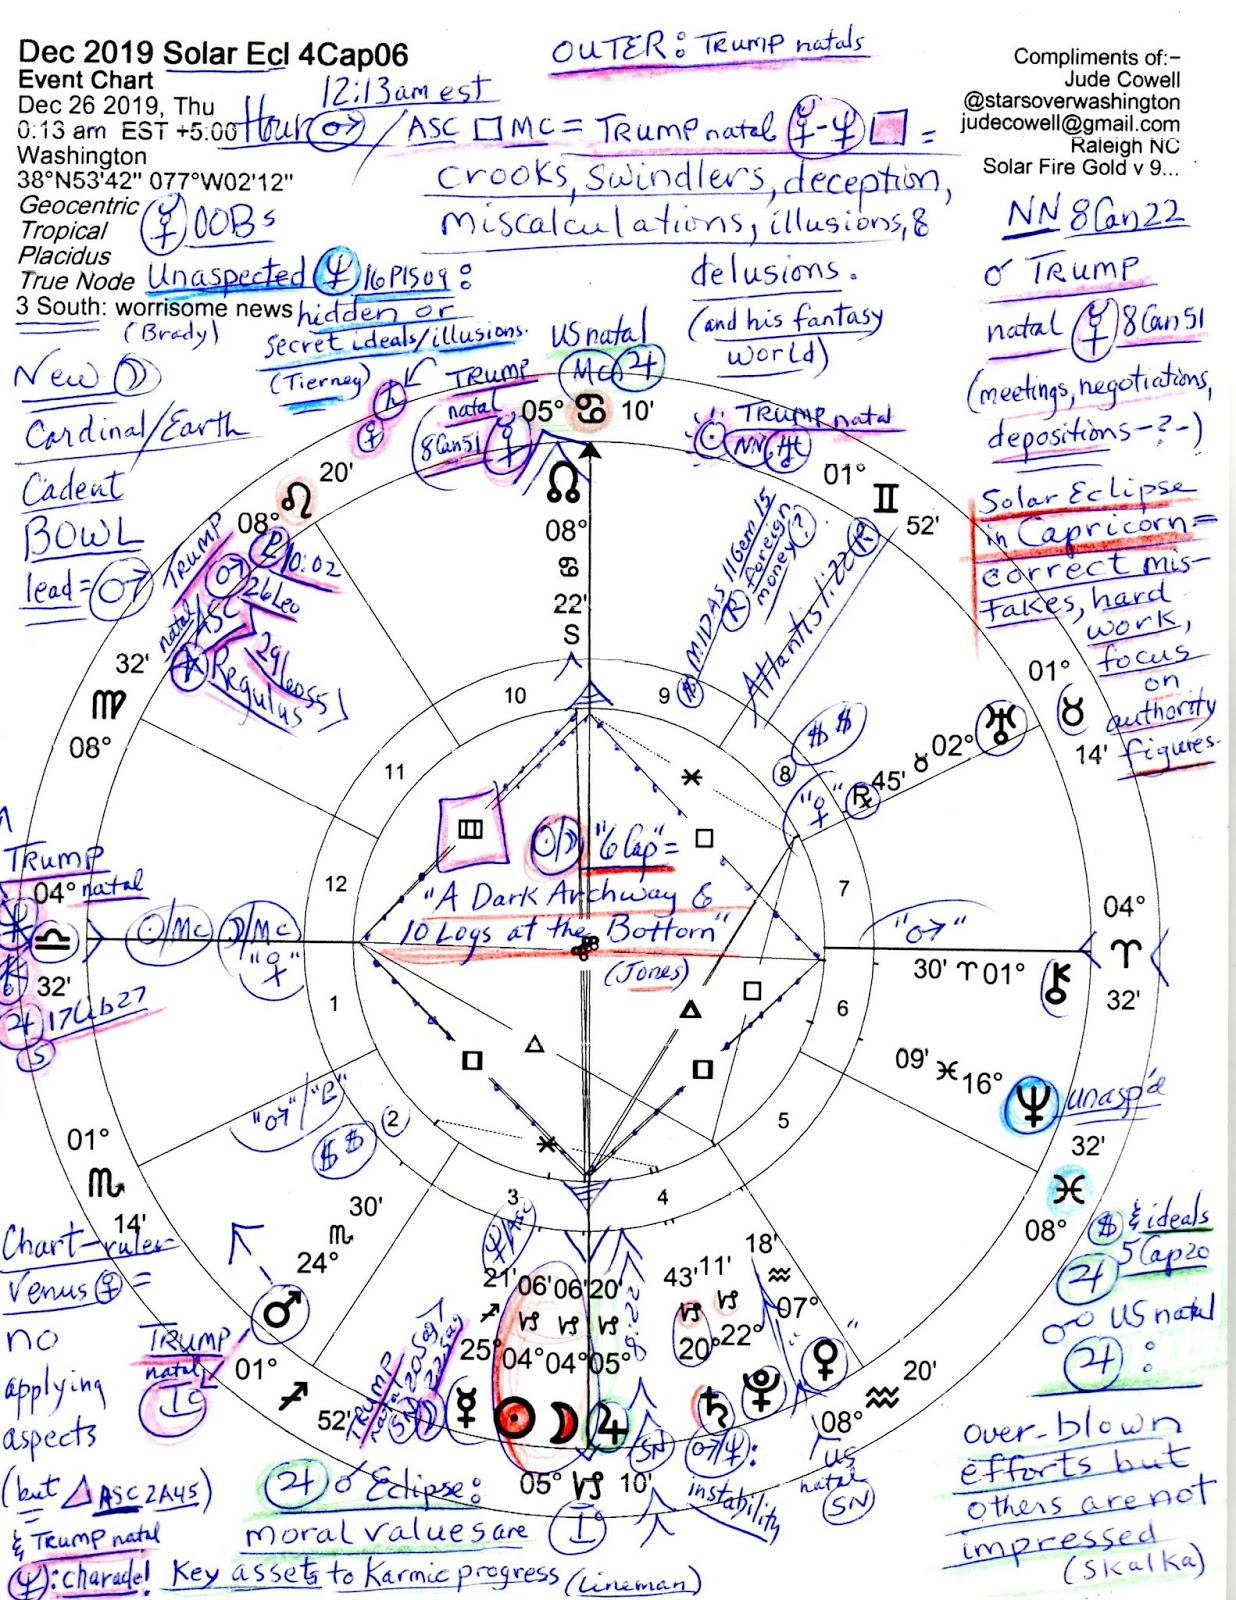 Dec 2019 Solar Ecl 4Cap06
Event Chart
Dec 26 2019, Thu
0:13 am EST +5:00
Washington
38°N53'42" 077°W02'12"
Geocentric
Tropical
Placidus
True Node
3 South: worrisome news
(Brady)
OUTER: TRUMP natals
12:13am est
Hour ♂ / ASC □ MC = TRUMP natal ☿-♆ □ =
crooks, swindlers, deception,
miscalculations, illusions, &
delusions.
(and his fantasy
world)
Compliments of:-
Jude Cowell
@starsoverwashington
judecowell@gmail.com
Raleigh NC
Solar Fire Gold v 9...
☿ OOBs
Unaspected ♆ 16PIS09:
hidden or
secret ideals/illusions.
(Tierney)
NN 8Can22
☌ TRUMP
natal ☿ 8Can51
(meetings, negotiations,
depositions-?-)
Solar Eclipse
in Capricorn=
correct mis-
takes, hard
work,
focus
on
authority
figures.
New ☽
Cardinal/Earth
Cadent
BOWL
lead=♂
US natal
MC ♃
05° ♋ 10'
TRUMP
natal
8Can51 ☿
♄
♀
☉ TRUMP natal
NN ♅
01° ♊ 52'
20'
♌
08°
TRUMP
♇ 10:02
♂ 26Leo
natal ASC
29Leo55
Regulus
☊
08°
♋
22'
S
MIDAS 11Gem15
R
Foreign
money?
Atlantis 1:20 R
32'
♍
08°
01°
♉
14'
♅ 02° ♉ 45' ℞
$ $
"♀"
10
9
11
8
12
7
1
6
2
5
3
4
☉/☽ "6 Cap"=
"A Dark Archway &
10 Logs at the Bottom"
(Jones)
TRUMP
natal
04°
♎
32'
♃ 17Lib27
S
☉/MC ☽/MC
"♀"
"♂"
04°
♈
32'
30' ♈ 01° ⚷
09' ♓ 16° ♆ unasp'd
32'
♓
08°
01°
♏
14'
"♂"/"♇"
$ $
30'
♏
24°
♂
Chart-ruler
Venus ♀ =
no
applying
aspects
(but △ ASC 2A45)
& TRUMP natal
♆: charade!
TRUMP
natal
IC
01°
♐
52'
TRUMP
natal 20Sag
SN ☽ 22Sag
♆/ASC
21' ♐ 25° ☿
06' ♑ 04° ☉
06' ♑ 04° ☽
20' ♑ 05° ♃
8:22
SN
43' ♑ 20° ♄
11' ♑ 22° ♇
18' ♒ 07° ♀
20'
♒
08°
US
natal
SN
05° ♑ 10'
IC
♂/♆:
instability
♃ ☌ Eclipse:
moral values are
key assets to karmic progress (Lineman)
$ & ideals
♃ 5Cap20
☍ US natal
♃:
over-blown
efforts but
others are not
impressed
(Skalka)